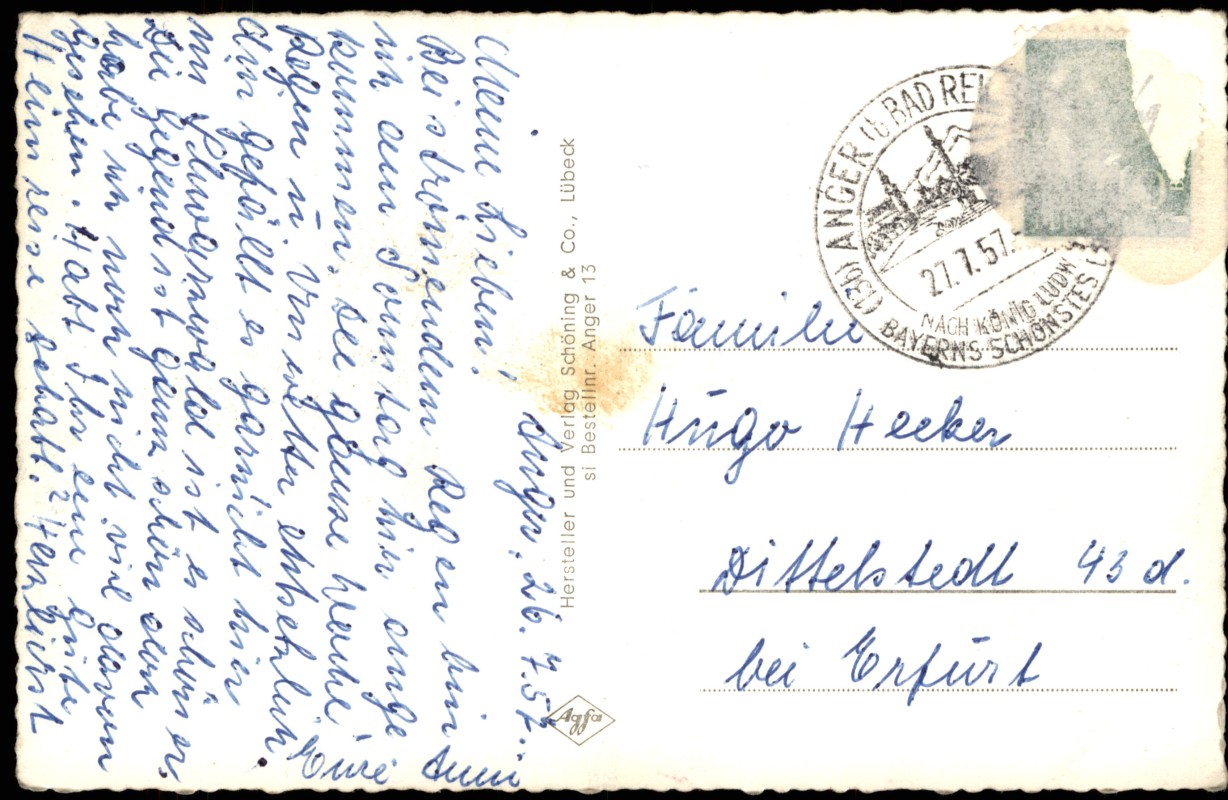 Anger, 26.7.57.
Meine Lieben!
Bei strömendem Regen bin
ich am Sonntag hir ange
kommen. die ganze Woche
Regen u Unwetter entsetzlich
Dir gefällt es garnicht hier
im Schwarzwald ist es schöner
Die Gegend ist ganz schön aber
habe ich noch nicht viel davon
gesehen. Habt Ihr eine gute
Heimreise gehabt? Herzlichst
Eure Anni
Hersteller und Verlag Schöning & Co., Lübeck
si Bestellnr. Anger 13
Agfa
(13b) ANGER ü. BAD REI
27.7.57.
NACH KÖNIG LUDW
BAYERNS SCHÖNSTES
Familie
Hugo Hecker
Dittelstedt 43 d.
bei Erfurt